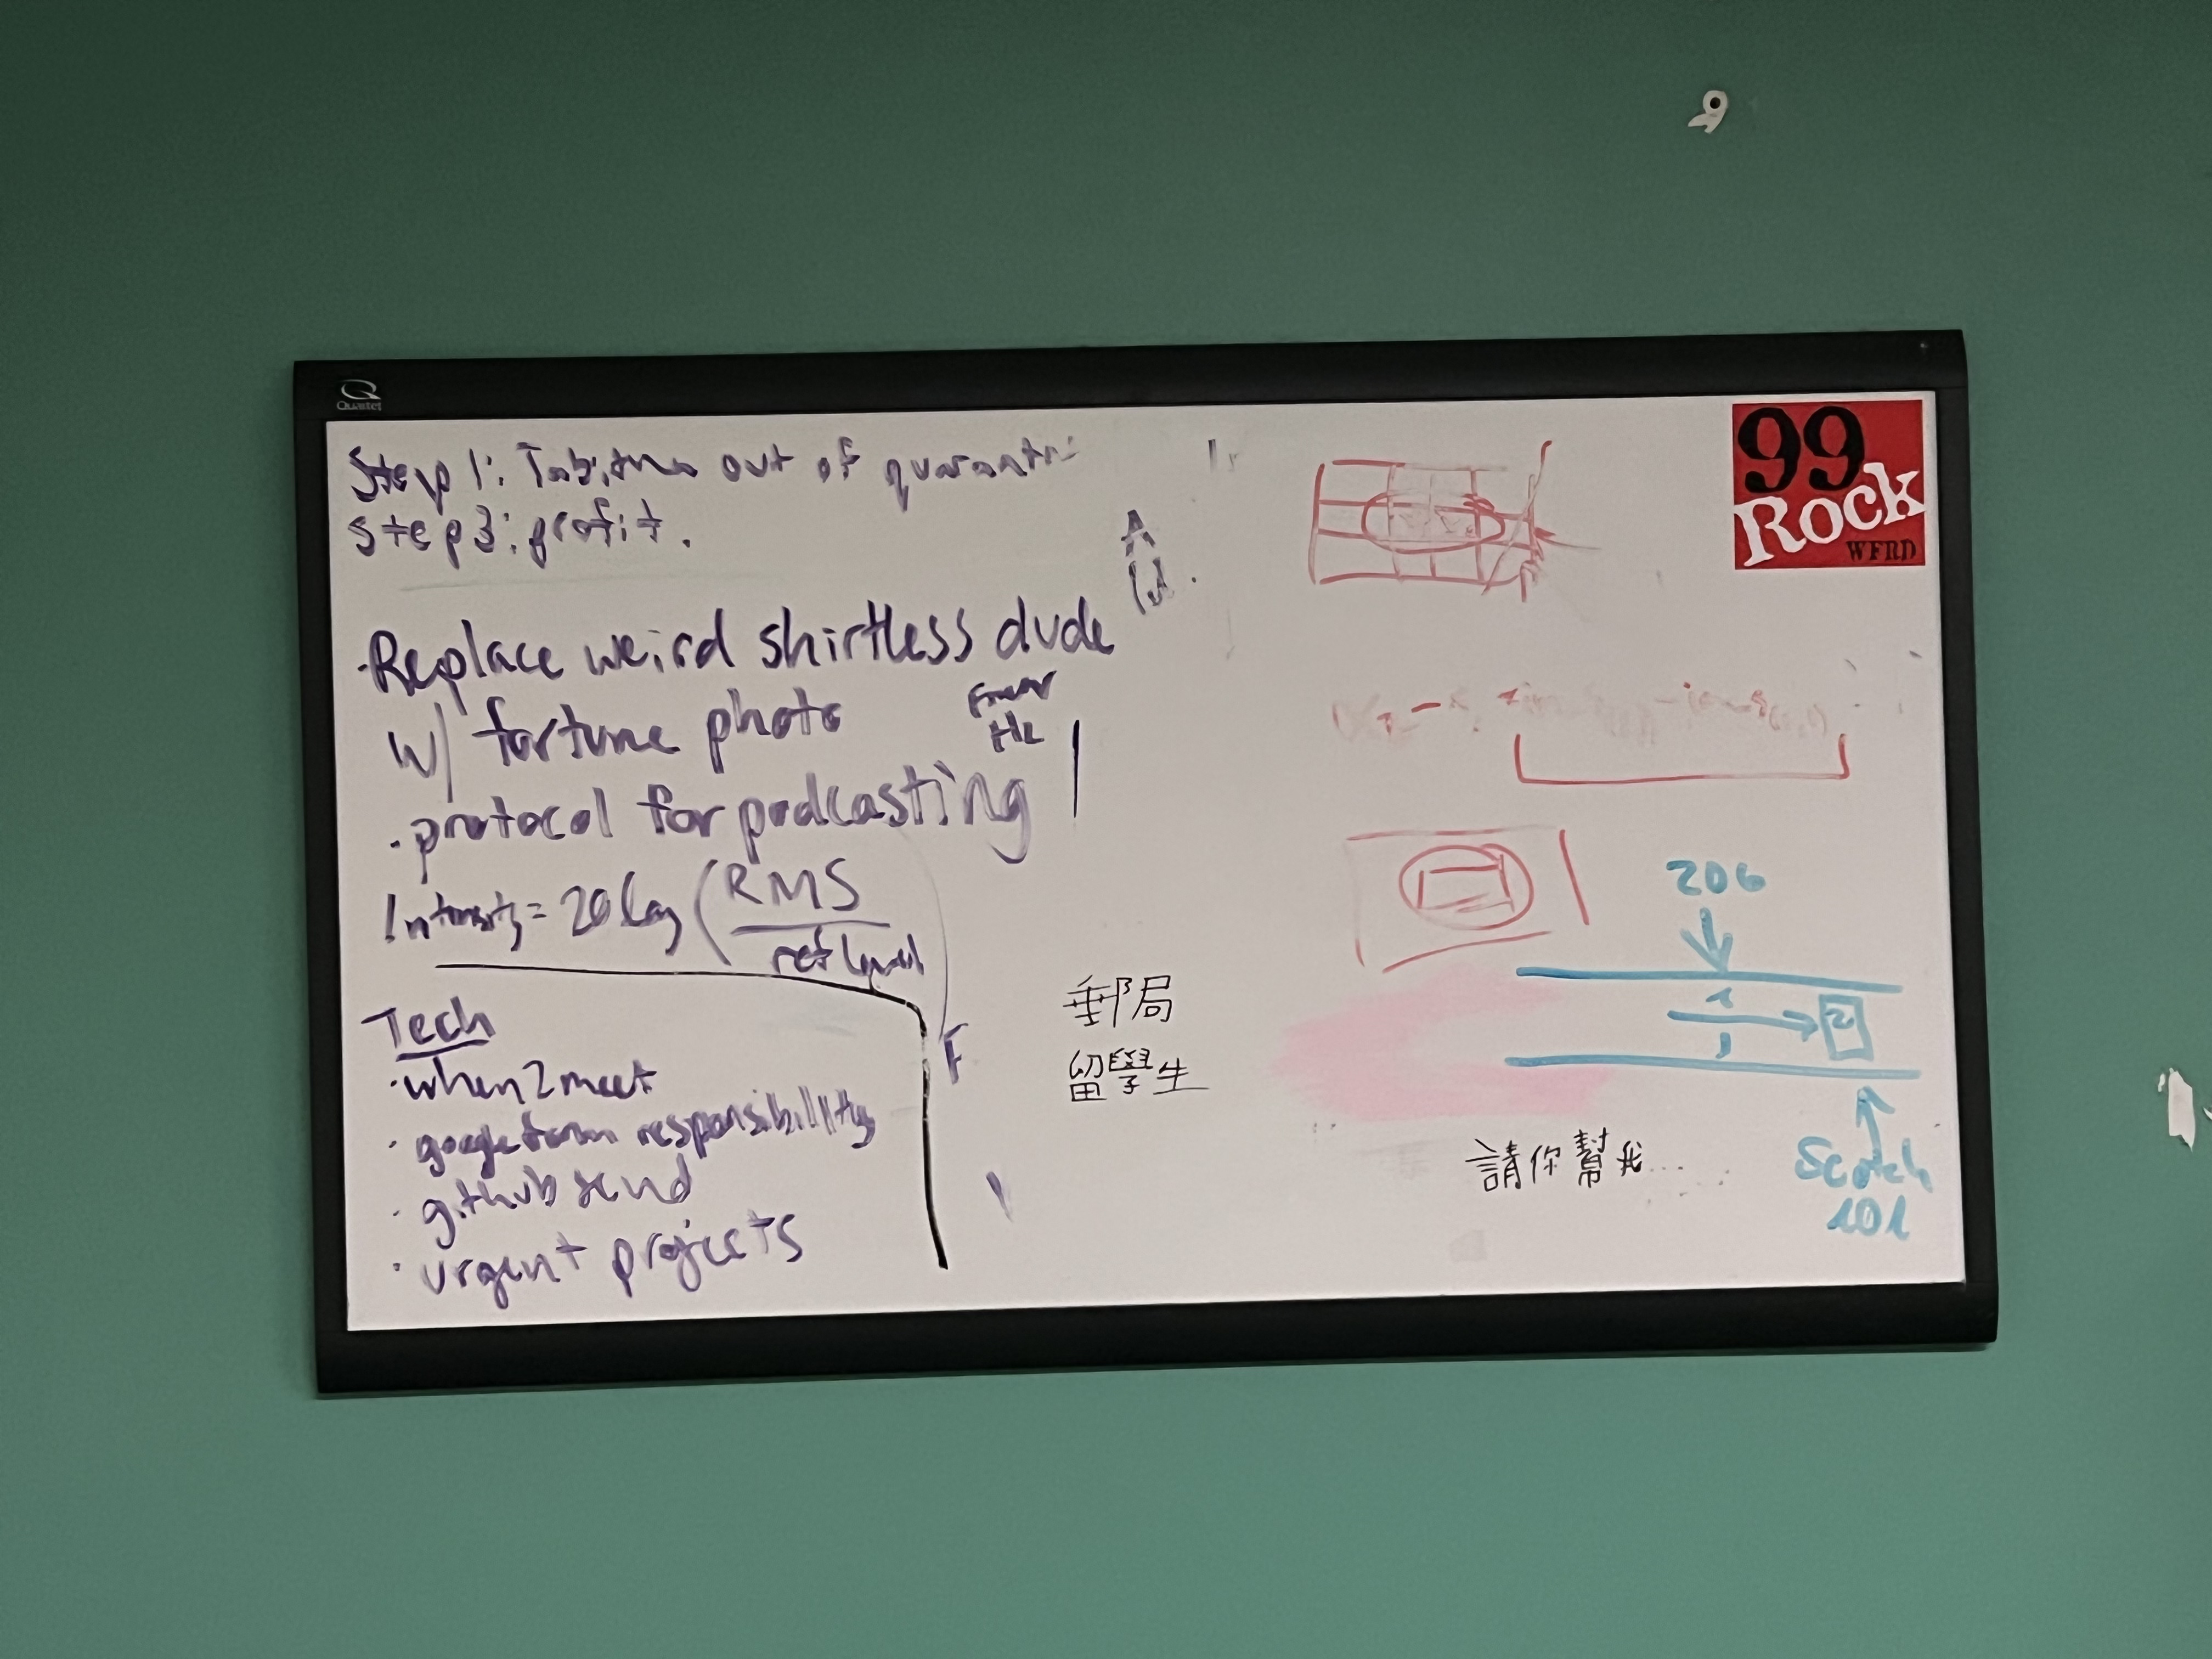 Quartet
Step 1: Tabitha out of
Step 3: profit.
99
Rock
WFRD
·Replace weird shirtless dude
w/ fortune photo
Hz
·protocol for podcasting
Intensity = 20 log (RMS
ref level
Tech
·when2meet
·google form responsibility
·github send
·urgent projects
F
郵局
留學生
請你幫我......
206
2
101